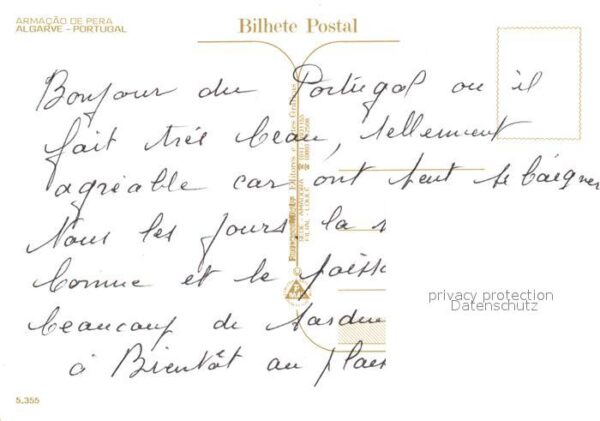 ARMAÇÃO DE PERA
ALGARVE - PORTUGAL
Bilhete Postal
Bonjour du Portugal ou il
fait très beau, tellement
agréable car ont peut se baigner
Tous les jours. la
bonne et le poisso
beaucoup de sardin
à Bientôt au plais
privacy protection
Datenschutz
5.355